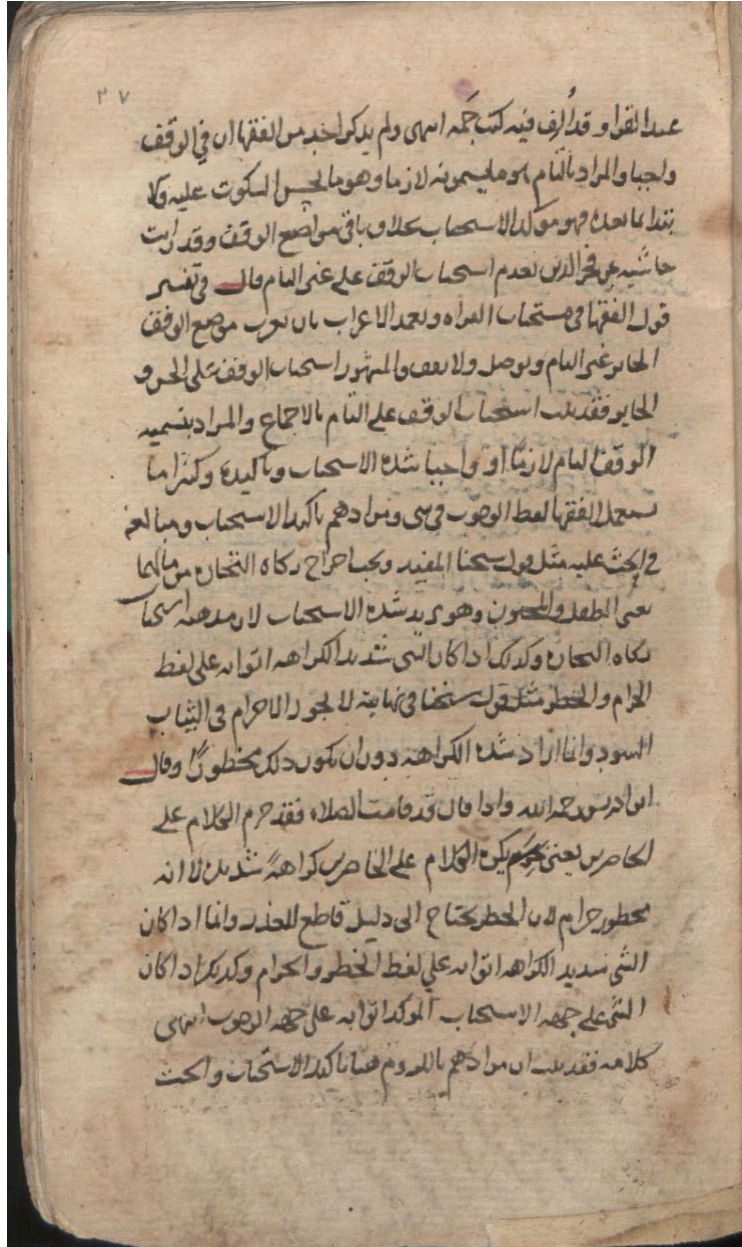 ٢٧
عند القراء وقد أُلِّف فيه كتب جَمَّه انتهى ولم يذكر احد من الفقها ان في الوقف
واجبا والمراد بالتام هو ما يسمونه لازما وهو ما يحسن السكوت عليه ولا
بما بعده فهو موكد الاستحباب بخلاف باقي مواضع الوقف وقد رايت
حاشيه عن فخر الدين بعدم استحباب الوقف على غير التام قال في تفسير
قول الفقها في مستحبات القراه وتعمد الاعراب بان يعرب مواضع الوقف
الجايز غير التام ويوصل ولا يقف والمشهور استحباب الوقف على الحسن و
الجايز فقد ثبت استحباب الوقف على التام بالاجماع والمراد بتسميه
الوقف التام لازمًا او واجبا شده الاستحباب وتاكيده وكثيرا ما
تستعمل الفقها لفظ الوجوب في شي ومرادهم تاكيد الاستحباب ومبالغه
في الحث عليه مثل قول شيخنا المفيد ويجب اخراج زكاه التجاره من مالهما
يعني الطفل والمجنون وهو يريد شده الاستحباب لان مذهبه استحباب
زكاه التجاره وكذلك اذا كان الشي شديد الكراهه اتوا به على لفظ
الحرام والحظر مثل قول شيخنا في نهايته لا يجوز الاحرام في الثياب
السود وانما اراد شده الكراهه دون ان يكون ذلك محظورًا وقال
ابن ادريس رحمه الله واذا قال قد قامت الصلاه فقد حرم الكلام على
الحاضرين يعني يكره الكلام على الحاضرين كراههً شديده لا انه
محظور حرام لان الحظر يحتاج الى دليل قاطع للعذر وانما اذا كان
الشي شديد الكراهه اتوا به على لفظ الحظر والحرام وكذلك اذا كان
الشي على جهه الاستحباب الموكد اتوا به على جهه الوجوب انتهى
كلامه فقد ثبت ان مرادهم باللزوم هنا تاكيد الاستحباب والحث